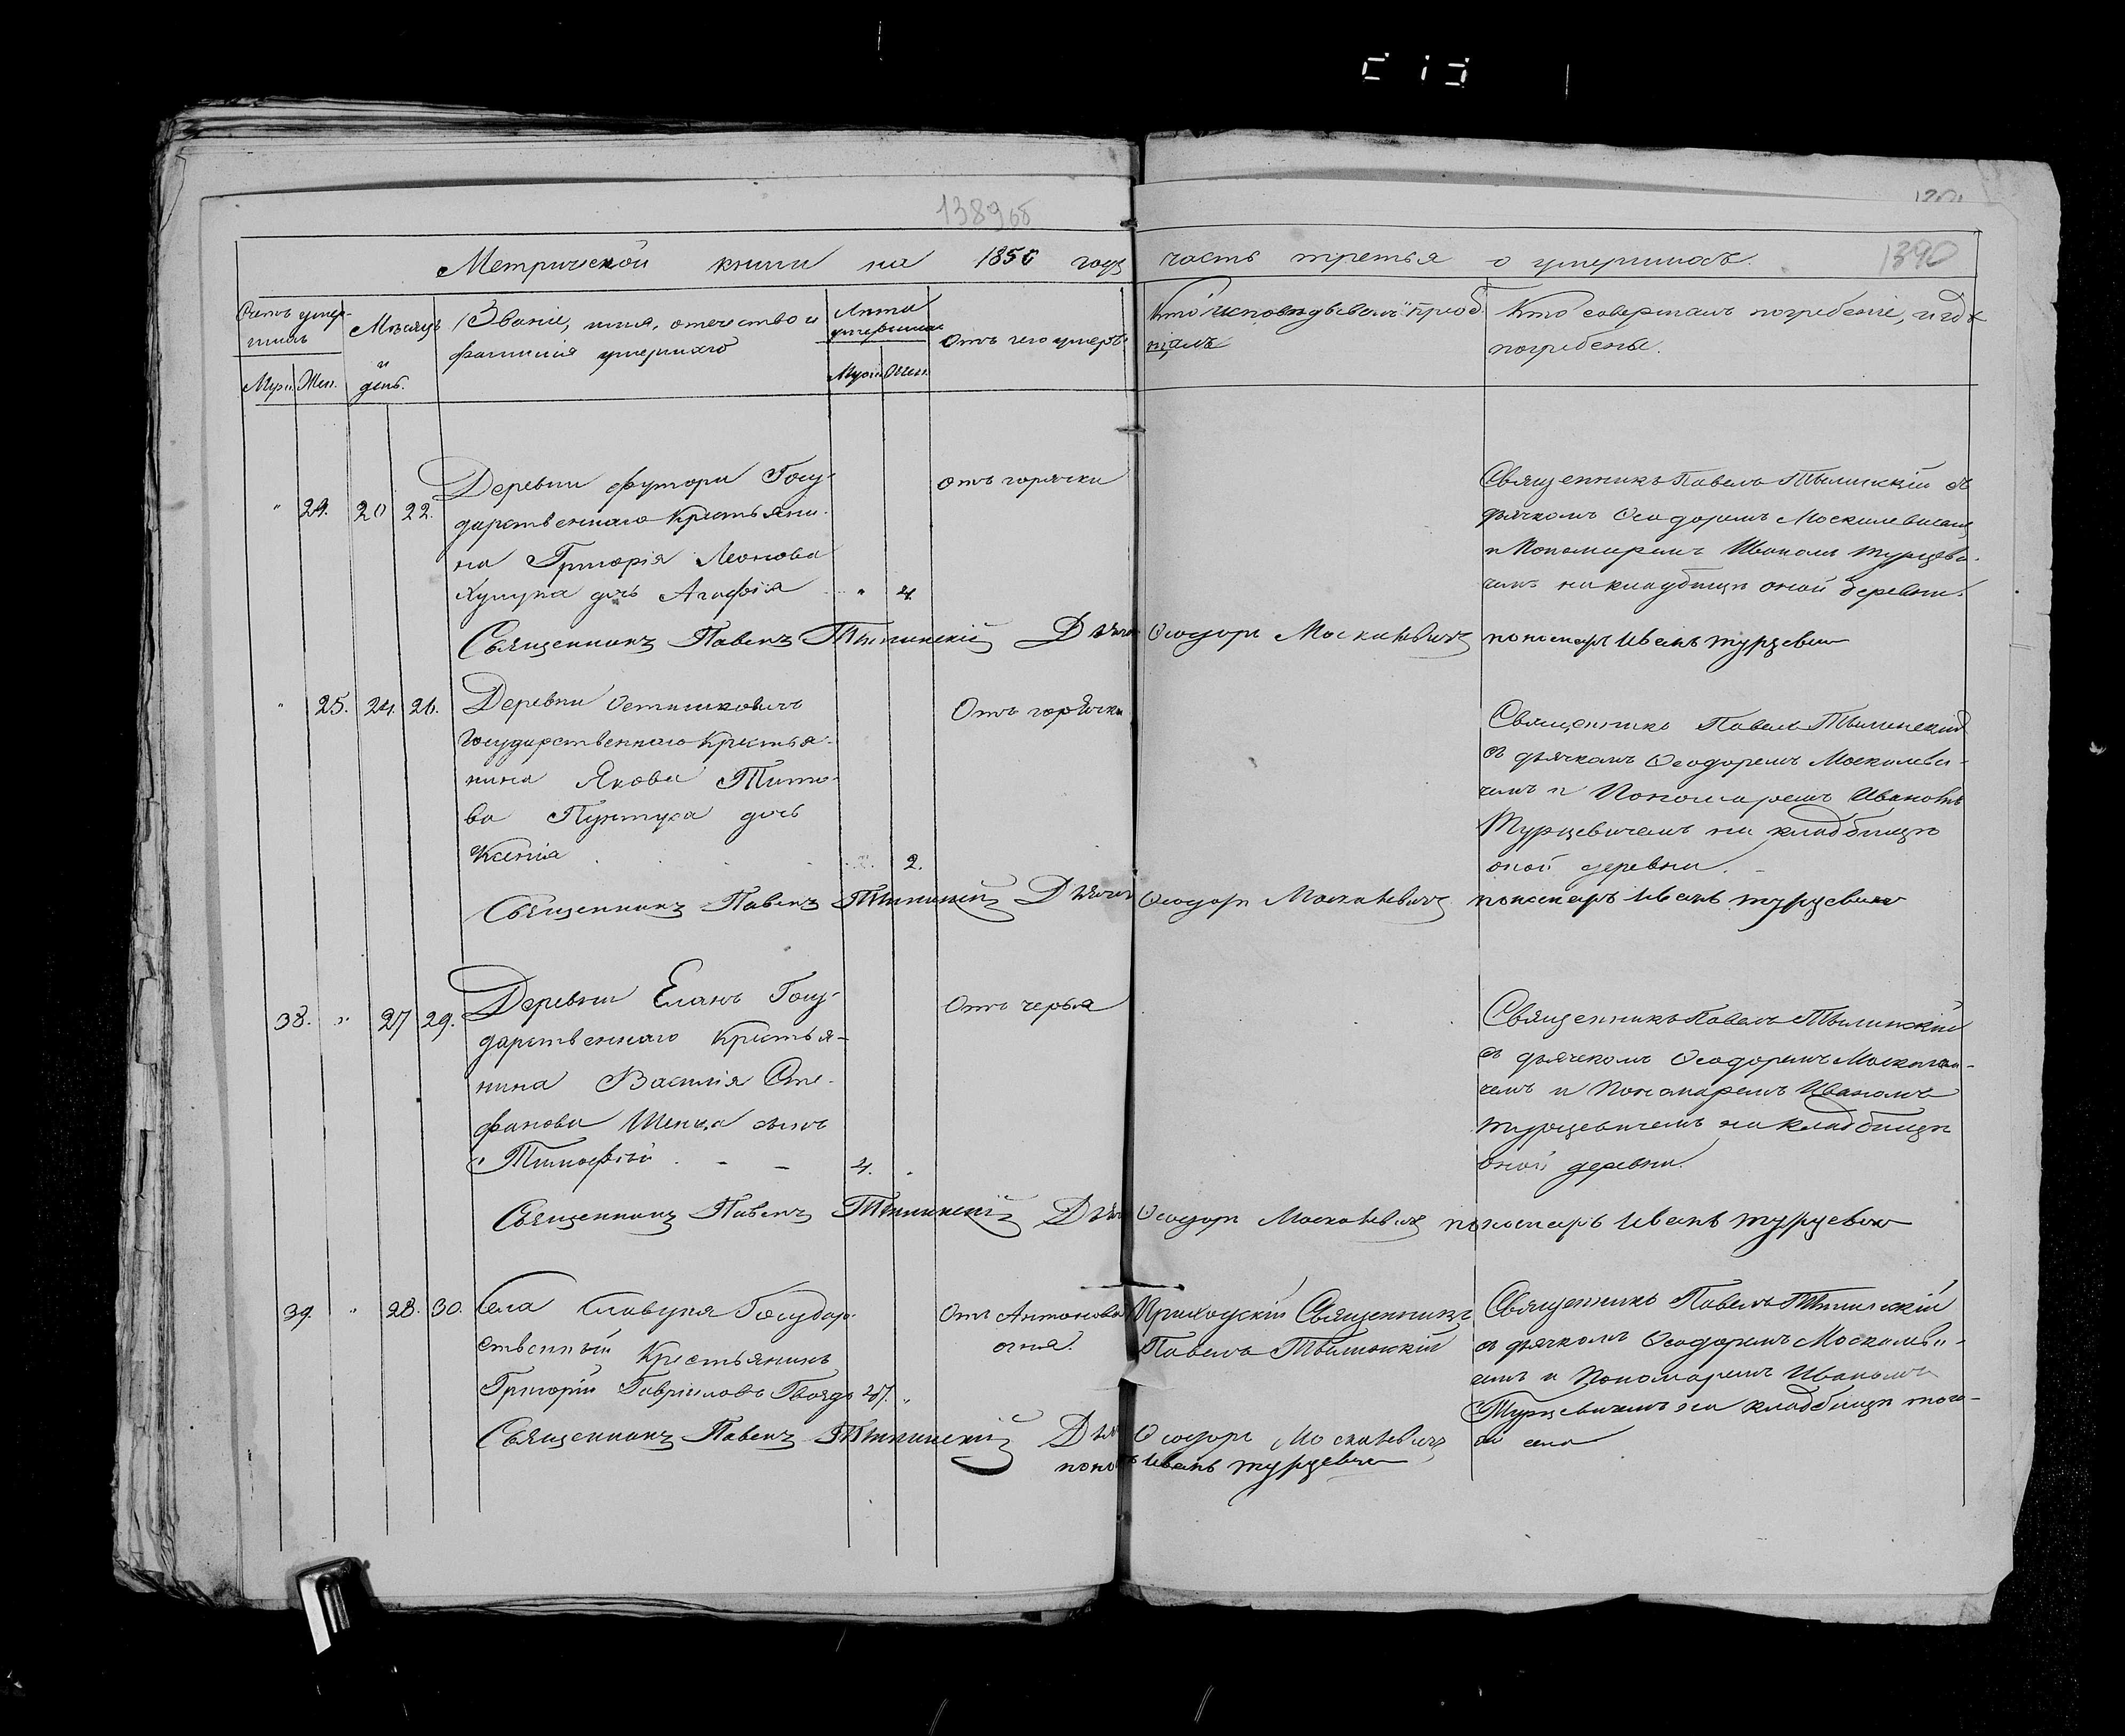 1389об
1390
Метрической книги на 1850 годъ часть третья о умершихъ.
Счетъ умер-
шихъ
Муж. Жен.
Мѣсяцъ
и
день.
Званіе, имя, отечество и
фамилія умершаго
Лѣта
умершихъ
Муж. Жен.
Отъ чего умеръ
Кто исповѣдывалъ и пріоб
щалъ
Кто совершалъ погребеніе, и гдѣ
погребены.
" 24. 20 22.
Деревни Футоры Госу-
дарственнаго Крестьяни-
на Григорія Леонова
дочь Агафія " 4.
отъ горячки
Священникъ Павелъ Тылинскій съ
дьячкомъ Ѳеодоромъ Москалевичемъ
и Пономаремъ Иваномъ Турцеви-
чемъ на кладбищѣ оной деревни.
Священникъ Павелъ Тылинскій Дьячо Ѳеодоръ Москалевичъ пономарь Иванъ Турцевич
" 25. 24. 26.
Деревни
Государственнаго Крестья-
нина Якова Тито-
ва Пунтуса дочь
Ксенія 2.
Отъ горячки
Священникъ Павелъ Тылинскій
съ дьячкомъ Ѳеодоромъ Москалеви-
чемъ и Пономаремъ Иваномъ
Турцевичемъ на кладбищѣ
оной деревни.
Священникъ Павелъ Тылинскій Дьячо Ѳеодоръ Москалевичъ пономарь Иванъ Турцевич
38. " 27 29.
Деревни Еланъ Госу-
дарственнаго Крестья-
нина Василія Сте-
фанова сынъ
Тимофѣй - - 4. "
Отъ червя
Священникъ Павелъ Тылинскій
съ дьячкомъ Ѳеодоромъ Москалеви-
чемъ и Пономаремъ Иваномъ
Турцевичемъ на кладбищѣ
оной деревни.
Священникъ Павелъ Тылинскій Дьяч Ѳеодоръ Москалевичъ пономарь Иванъ Турцевич
39. " 28. 30.
Села Государ-
ственный Крестьянинъ
Григорій Гавріиловъ Гвоздь 47. "
Отъ Антонова
огня.
Приходскій Священникъ
Павелъ Тылинскій
Священникъ Павелъ Тылинскій
съ дьячкомъ Ѳеодоромъ Москалеви-
чемъ и Пономаремъ Иваномъ
Турцевичемъ на кладбищѣ того-
жъ села
Священникъ Павелъ Тылинскій Дья Ѳеодоръ Москалевичъ
поно Иванъ Турцевич